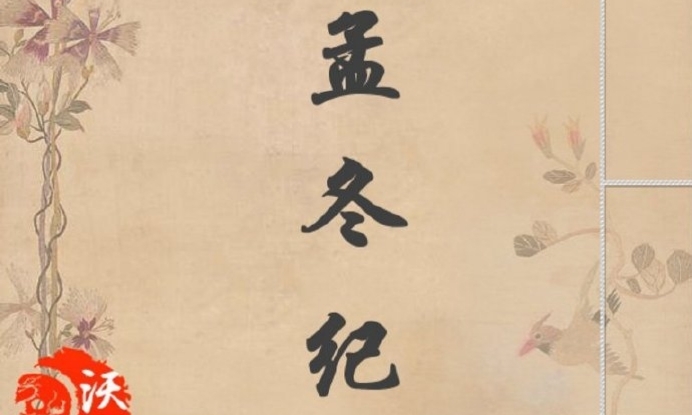 孟冬纪
沃